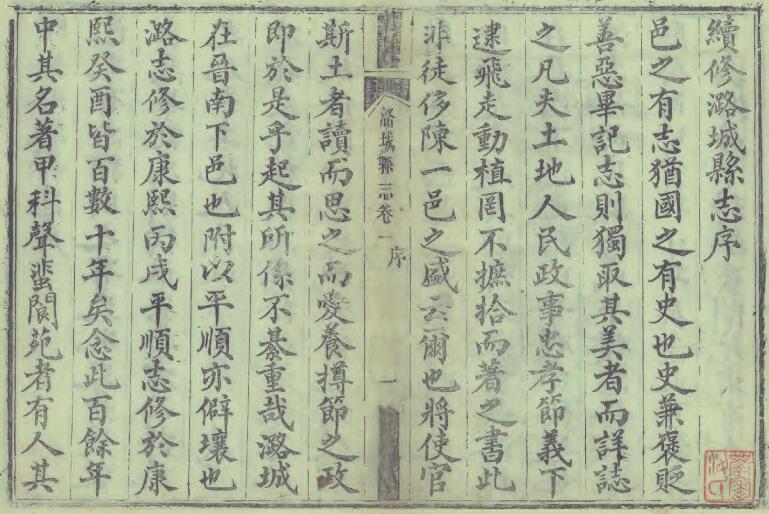 續修潞城縣志序
邑之有志猶國之有史也史兼褒貶
善惡畢記志則獨取其美者而詳誌
之凡夫土地人民政事忠孝節義下
逮飛走動植罔不摭拾而著之書此
非徒侈陳一邑之盛云爾也將使官
潞城縣志卷一 序 一
斯土者讀而思之而愛養撙節之政
即於是乎起其所係不綦重哉潞城
在晉南下邑也附以平順亦僻壤也
潞志修於康熙丙戌平順志修於康
熙癸酉皆百數十年矣念此百餘年
中其名著甲科聲蜚閬苑者有人其